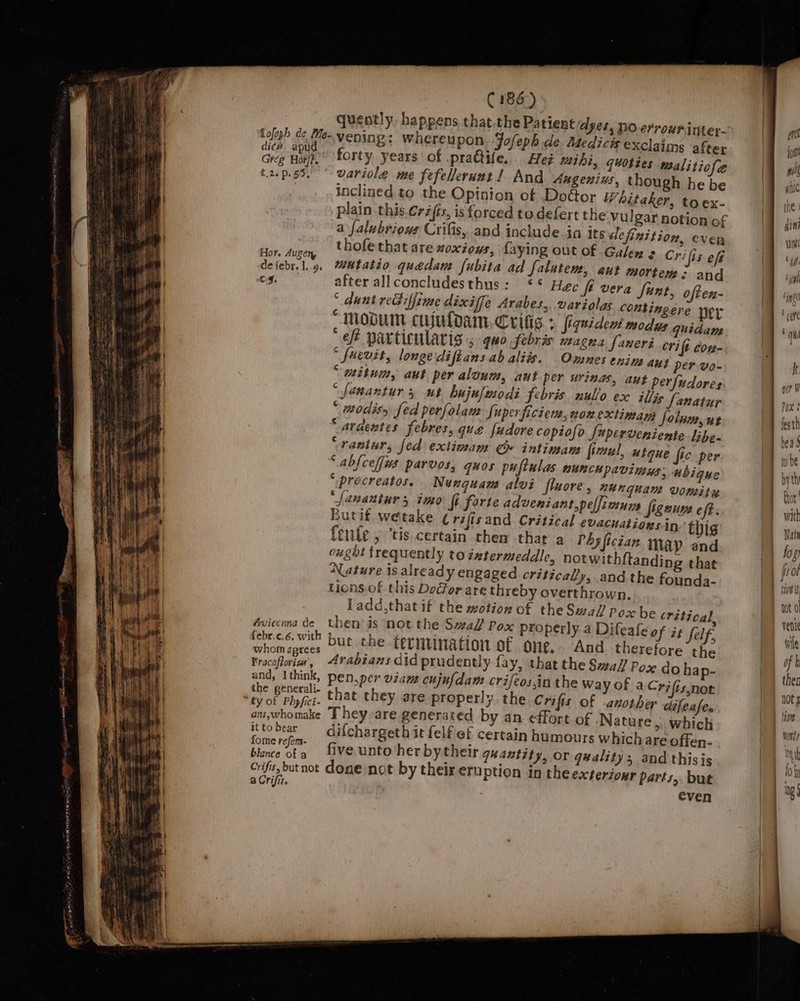 (186)
quently happens that the Patient dyes, no errour inter-
vening: whereupon, Joseph de Medicis exclaims after
forty years of practise. Hei mihi, quoties malitiosæ
variolæ me fefellerunt! And Augenius, though he be
inclined to the Opinion of Doctor Whitaker, to ex-
plain this Crisis, is forced to desert the vulgar notion of
a salubrious Crisis, and include in its definition, even
those that are noxious, saying out of Galen: Crisis est
mutatio quædam subita ad salutem, aut mortem: and
after all concludes thus: “ Hæc si vera sunt, osten-
“ dunt rectissime dixisse Arabes, variolas contingere per
“ modum cujusdam Crisis; siquidem modus quidam
“ est particularis; quo febris magna saneri crisi con-
“ suevit, longe distans ab aliis. Omnes enim aut per vo-
“ mitum, aut per alvum, aut per urinas, aut persudores
“ sanantur; ut hujusmodi febris nullo ex illis sanatur
“ modis, sed persolam superficiem, non extimam solum, ut
“ ardentes febres, quæ sudore copioso superveniente libe-
“ rantur, sed extimam & intimam simul, utque sic per
“ abscessus parvos, quos pustulas nuncupavimus, ubique
“ procreatos. Nunquam alvi fluore, nunquam vomitu
“ sanantur; imo si forte adveniant, pessimum signum est.
But if we take Crisis and Critical evacuations in this
sense, 'tis certain then that a Physician may and
ought frequently to intermeddle, notwithstanding that
Nature is already engaged critically, and the founda-
tions of this Doctor are threby overthrown.
I add, that if the motion of the Small Pox be critical,
then is not the Small Pox properly a Disease of it self,
but the termination of one. And therefore the
Arabians did prudently say, that the Small Pox do hap-
pen, per viam cujusdam criseos, in the way of a Crisis, not
that they are properly the Crisis of another disease.
They are generated by an effort of Nature, which
dischargeth it self of certain humours which are offen-
sive unto her by their quantity, or quality; and this is
done not by their eruption in the exteriour parts, but
even
Joseph de Me-
dicis apud
Greg Horst.
t.2. p. 55.
Hor. Augeny
de febr. l. 9.
c. 9.
Avicenna de
febr. c. 6. with
whom agrees
Fracastorius,
and, I think,
the generali-
ty of Physici-
ans, who make
it to bear
some resem-
blance of a
Crisis, but not
a Crisis.